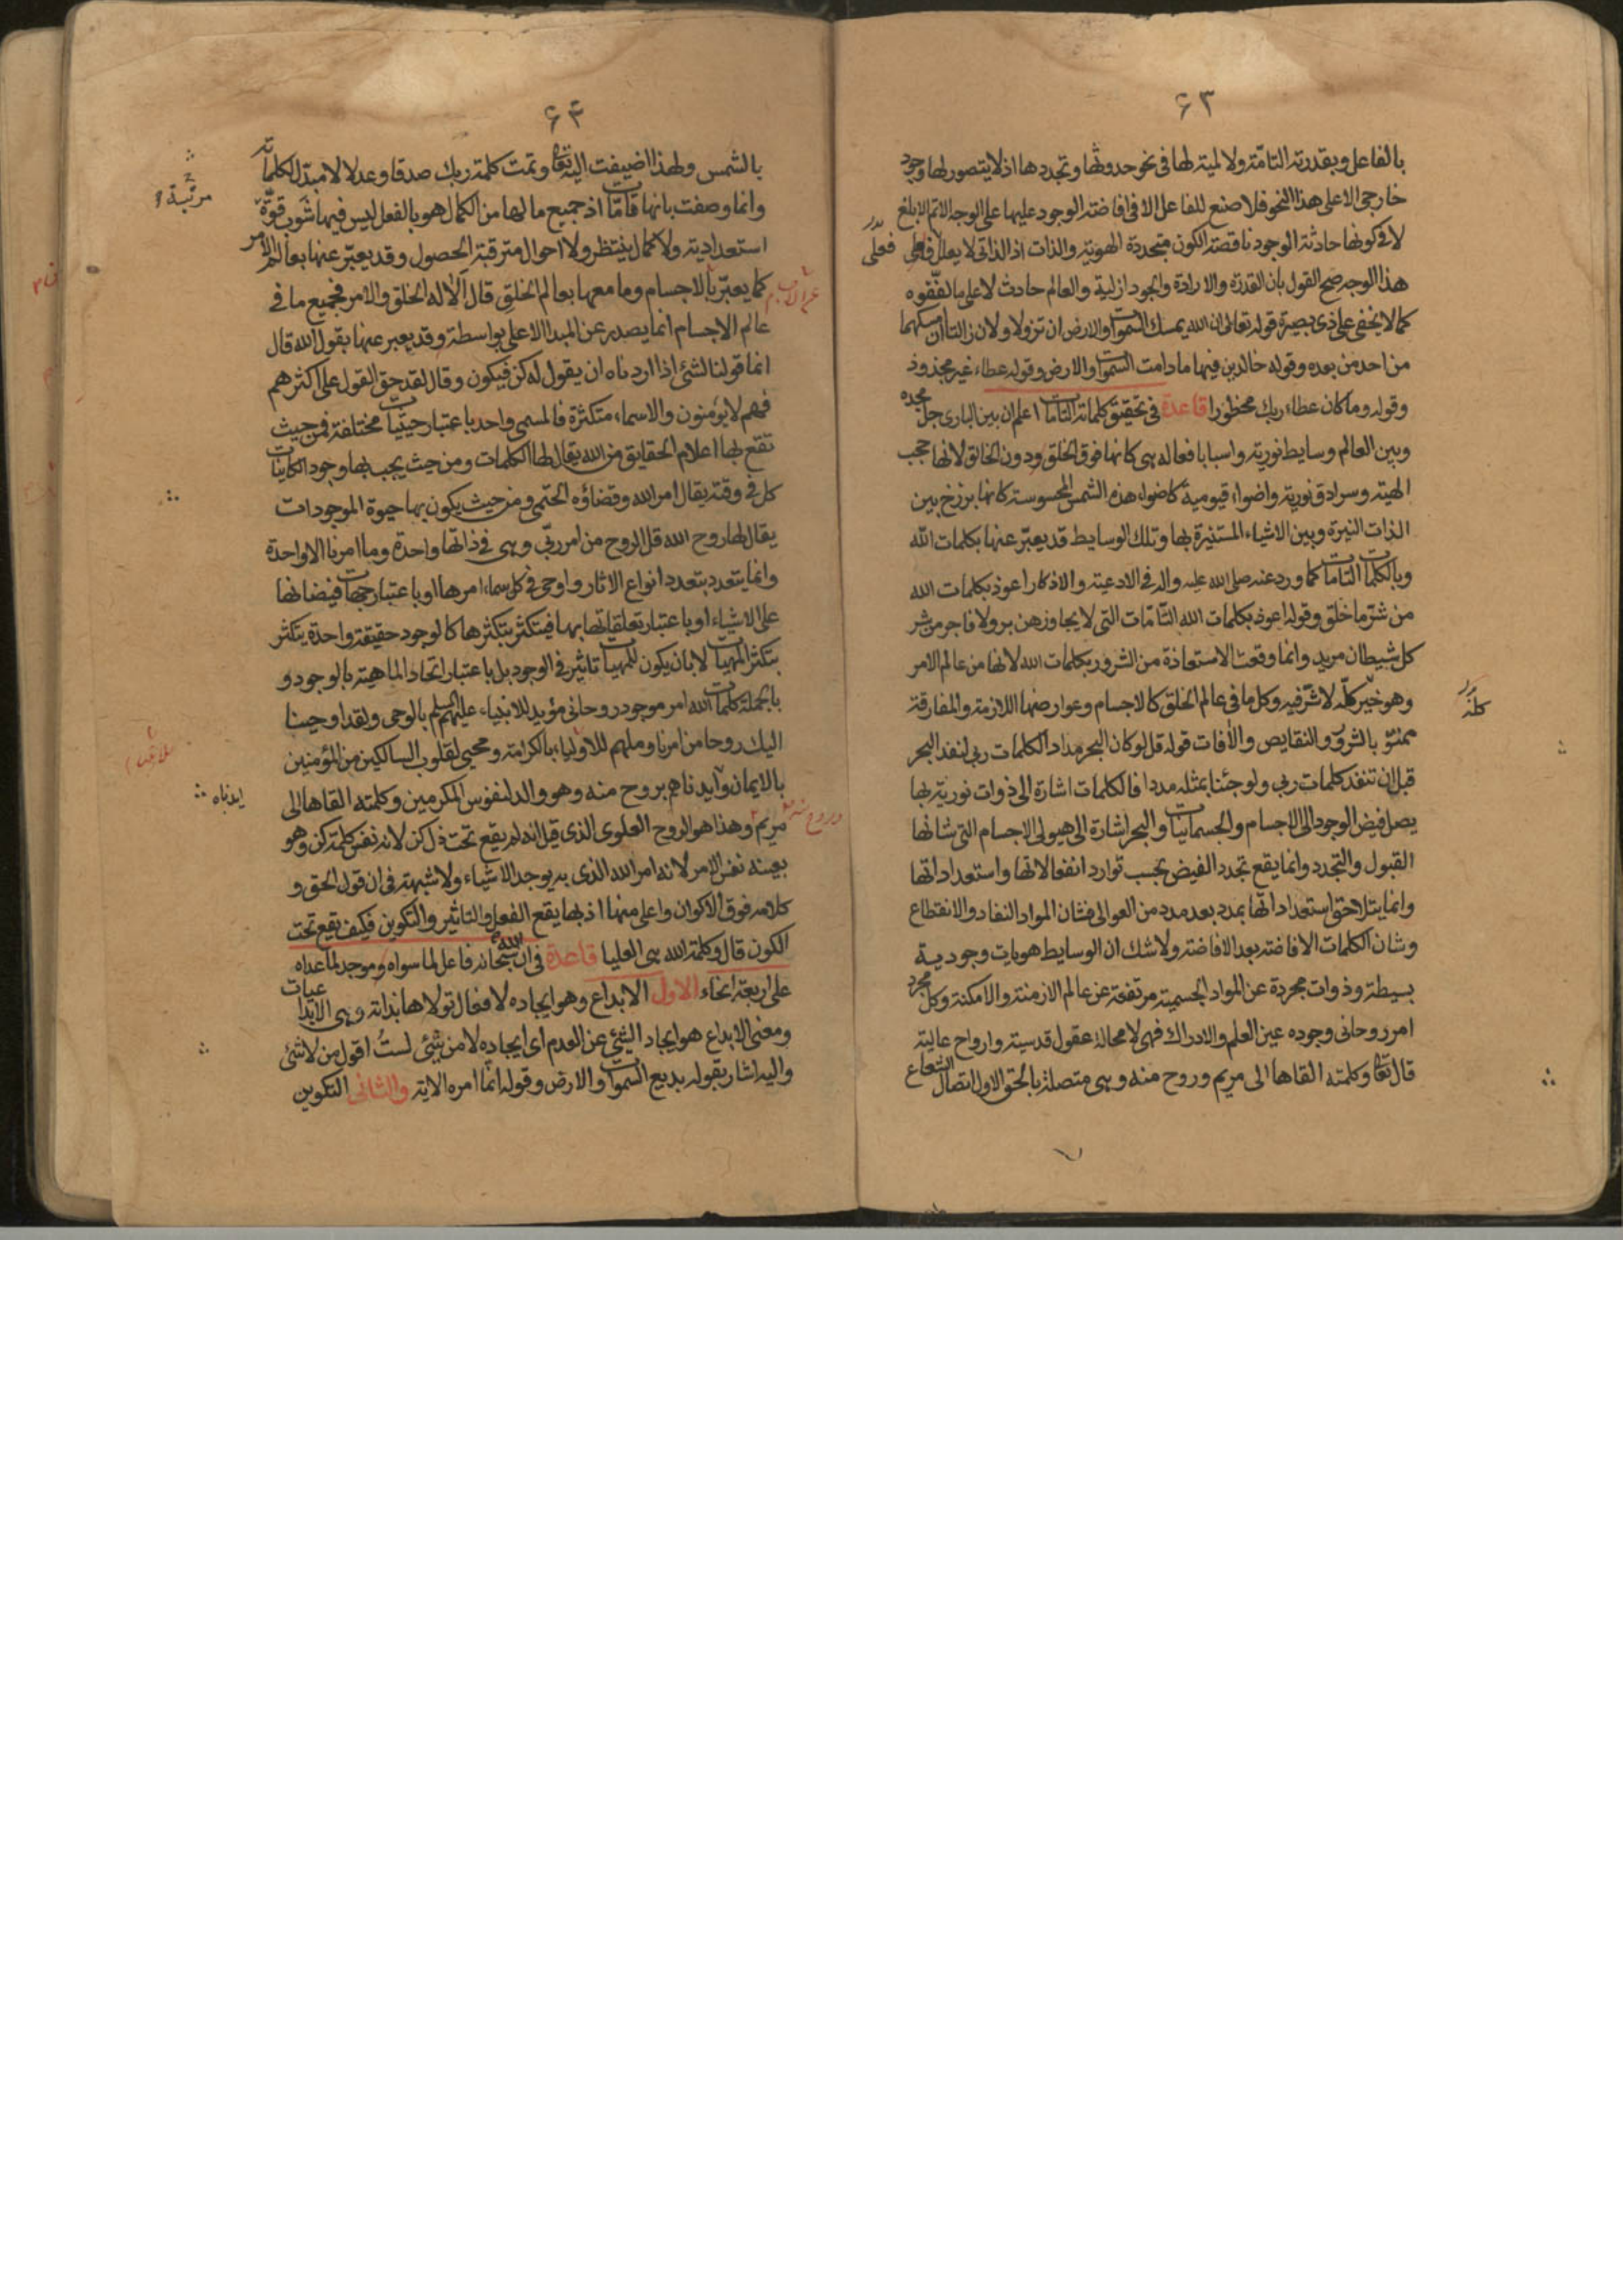 ۶۳
بالفاعل وبقدرته التامّة ولا لمية لها فى نحو حدوثها وتجددها اذ لا يتصور لها وجود
خارجى الا على هذا النحو فلا صنع للفاعل الا فى افاضة الوجود عليها على الوجه الاتم الابلغ
لا فى كونها حادثة الوجود ناقصة الكون متجددة الهوية والذات اذ الذاتى لا يعلل فعلى
هذا الوجه صح القول بان القدرة والارادة والجود ازلية والعالم حادث لا على ما لفّقوه
كما لا يخفى على ذى بصيرة قوله تعالى ان الله يمسك السموات والارض ان تزولا ولان زالتا ان امسكهما
من احد من بعده وقوله خالدين فيها ما دامت السموات والارض وقوله عطاء غير مجذوذ
وقوله وما كان عطاء ربك محظورا قاعدة فى تحقيق كلماته التامات اعلم ان بين البارى جل مجده
وبين العالم وسايط نورية واسبابا فعاله هى كانها فوق الخلق ودون الخالق لانها حجب
الهية وسرادق نورية واضواء قيومية كاضواء هذه الشمس المحسوسة كانها برزخ بين
الذات النيرة وبين الاشياء المستنيرة بها وتلك الوسايط قد يعبّر عنها بكلمات الله
وبالكلمات التامات كما ورد عنه صلى الله عليه واله فى الادعية والاذكار اعوذ بكلمات الله
من شرّ ما خلق وقوله اعوذ بكلمات الله التّامّات التى لا يجاوزهن بر ولا فاجر من شر
كل شيطان مريد وانما وقعت الاستعاذة من الشرور بكلمات الله لانها من عالم الامر
وهو خير كلّه لا شرّ فيه وكل ما فى عالم الخلق كالاجسام وعوارضها اللازمة والمفارقة
ممنوّ بالشرور والنقايص والآفات قوله قل لو كان البحر مدادا لكلمات ربى لنفد البحر
قبل ان تنفد كلمات ربى ولو جئنا بمثله مددا فالكلمات اشارة الى ذوات نورية بها
يصل فيض الوجود الى الاجسام والجسمانيات والبحر اشارة الى هيولى الاجسام التى شانها
القبول والتجدد وانما يقع تجدد الفيض بحسب توارد انفعالاتها واستعداداتها
وانما يتلاحق استعداداتها بمدد بعد مدد من العوالى فشان المواد النفاد والانقطاع
وشان الكلمات الافاضة بعد الافاضة ولا شك ان الوسايط هويات وجودية
بسيطة وذوات مجردة عن المواد الجسمية مرتفعة عن عالم الازمنة والامكنة وكل مجرد
امر روحانى وجوده عين العلم والادراك فهى لا محالة عقول قدسية وارواح عالية
قال تعالى وكلمته القاها الى مريم وروح منه وهى متصلة بالحق الاول اتصال الشعاع
كلّه
۶۴
بالشمس ولهذا اضيفت اليه تعالى وتمت كلمة ربك صدقا وعدلا لا مبدّل لكلماته
وانما وصفت بانها تامّات اذ جميع ما لها من الكمال هو بالفعل ليس فيها شوب قوّة
استعدادية ولا كمال ينتظر ولا احوال مترقبة الحصول وقد يعبّر عنها بعالم الامر
كما يعبّر بالاجسام وما معها بعالم الخلق قال الا له الخلق والامر فجميع ما فى
عالم الاجسام انما يصدر عن المبدا الاعلى بواسطة وقد يعبر عنها بقول الله قال
انما قولنا لشئ اذا اردناه ان يقول له كن فيكون وقال لقد حق القول على اكثرهم
فهم لا يؤمنون والاسماء متكثرة فالمسمى واحد باعتبار حيثيات مختلفة فمن حيث
تقع بها اعلام الحقايق من الله يقال لها الكلمات ومن حيث يجب بها وجود الكاينات
كل فى وقته يقال امر الله وقضاؤه الحتمى ومن حيث يكون بها حيوة الموجودات
يقال لها روح الله قل الروح من امر ربّى وهى فى ذاتها واحدة وما امرنا الا واحدة
وانما يتعدد بتعدد انواع الاثار واوحى فى كل سماء امرها او باعتبار جهات فيضانها
على الاشياء او باعتبار تعلقاتها بها فيتكثر بتكثرها كالوجود حقيقة واحدة يتكثر
بتكثر المهيات لا بان يكون للمهيات تاثير فى الوجود بل باعتبار اتحاد الماهية بالوجود و
بالجملة كلمات الله امر موجود روحانى مؤيد للانبياء عليهم السلم بالوحى ولقد اوحينا
اليك روحا من امرنا وملهم للاولياء بالكرامة ومحيى لقلوب السالكين من المؤمنين
بالايمان وايدناهم بروح منه وهو والد لنفوس المكرمين وكلمته القاها الى
مريم وهذا هو الروح العلوى الذى قيل انه لم يقع تحت ذل كن لانه نفس كلمة كن وهو
بعينه نفس الامر لانه امر الله الذى به يوجد الاشياء ولا شبهة فى ان قول الحق و
كلامه فوق الاكوان واعلى منها اذ بها يقع الفعل والتاثير والتكوين فكيف يقع تحت
الكون قال وكلمة الله هى العليا قاعدة فى ان الله سبحانه فاعل لما سواه وموجد لما عداه
على اربعة انحاء الاول الابداع وهو ايجاده لا فعال تولاها بذاته وهى الابداعيات
ومعنى الابداع هو ايجاد الشئ عن العدم اى ايجاده لا من شئ لست اقول من لا شئ
واليه اشار بقوله بديع السموات والارض وقوله انما امره الاية والثانى التكوين
مرتبة
ايدناه